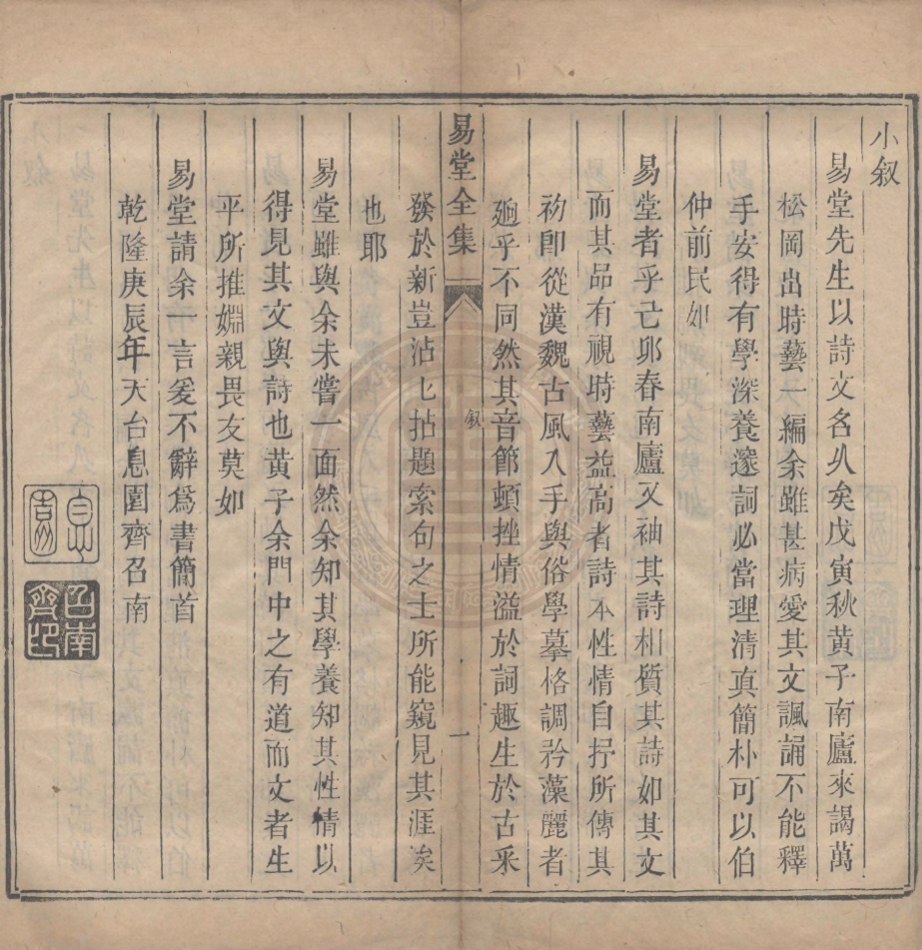 小叙
易堂先生以詩文名乆矣戊寅秋黄子南廬來謁萬
松岡出時藝一編余雖甚病愛其文諷誦不能釋
手安得有學深養邃詞必當理清真簡朴可以伯
仲前民如
易堂者乎己卯春南廬又袖其詩相質其詩如其文
而其品有視時藝益高者詩本性情自抒所傳其
初卽從漢魏古風入手與俗學摹格調矜藻麗者
廻乎不同然其音節頓挫情溢於詞趣生於古釆
易堂全集
叙
一
發於新豈沾匕拈題索句之士所能窺見其涯涘
也耶
易堂雖與余未嘗一面然余知其學養知其性情以
得見其文與詩也黄子余門中之有道而文者生
平所推婣親畏友莫如
易堂請余一言爰不辭爲書簡首
乾隆庚辰年天台息園齊召南
息園
召南
齊印